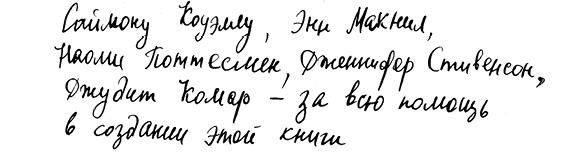 Саймону Коуэллу, Энн Макнил,
Наоми Поттесмен, Дженнифер Стивенсон,
Джудит Комар – за всю помощь
в создании этой книги